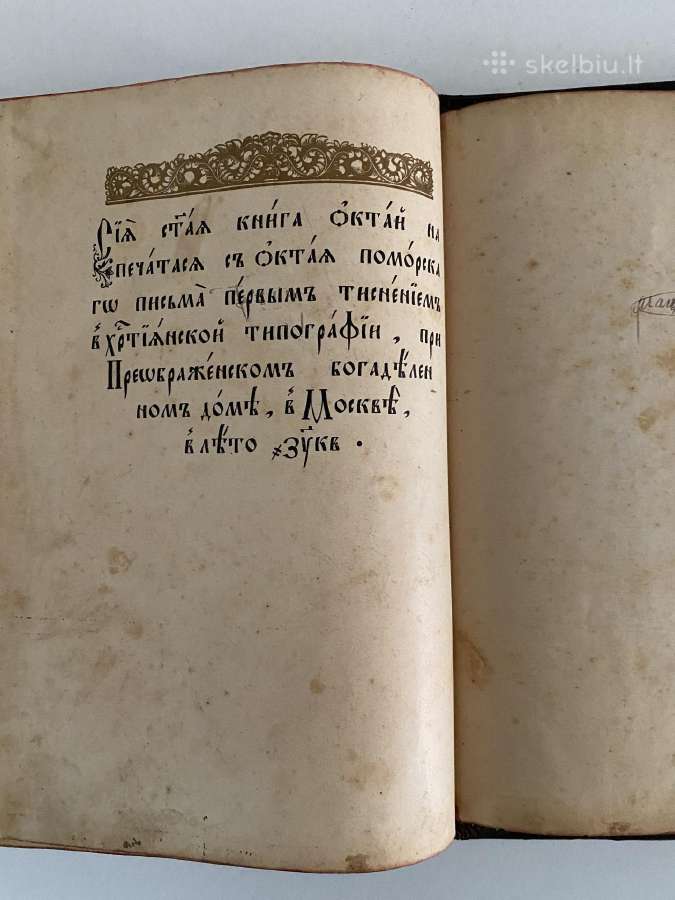 skelbiu.lt
Сїѧ̀ ст҃аѧ кни́га ѻ҆кта́й на
печа́тасѧ съ ѻ҆кта́ѧ помо́рска
гѡ письма̀ пе́рвымъ тисне́нїемъ
в̾хрⷭ҇тїѧ́нской типогра́фїи, при
Преѡбраже́нскомъ богадѣ́лен
номъ до́мѣ, в̾ Москвѣ̀,
в̾лѣ́то ҂зу҃кв.